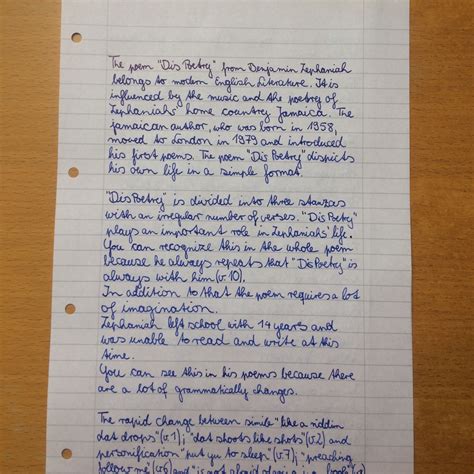 The poem "Dis Poetry" from Benjamin Zephaniah
belongs to modern English Literature. It is
influenced by the music and the poetry of
Zephaniahs' home country Jamaica. The
jamaican author, who was born in 1958,
moved to London in 1979 and introduced
his first poems. The poem "Dis Poetry" dispicts
his own life in a simple format.
"Dis Poetry" is divided into three stanzas
with an irregular number of verses. "Dis Poetry"
plays an important role in Zephaniahs' life.
You can recognize this in the whole poem
because he always repeats that "Dis Poetry" is
always with him (v. 10).
In addition to that the poem requires a lot
of imagination.
Zephaniah left school with 14 years and
was unable to read and write at this
time.
You can see this in his poems because there
are a lot of grammatically changes.
The rapid change between simile "like a riddin
dat drops" (v.1); "dat shoots like shots" (v.2) and
personification "put yu to sleep" (v.7); "preaching
follow me" (v.6) and "is not afraid